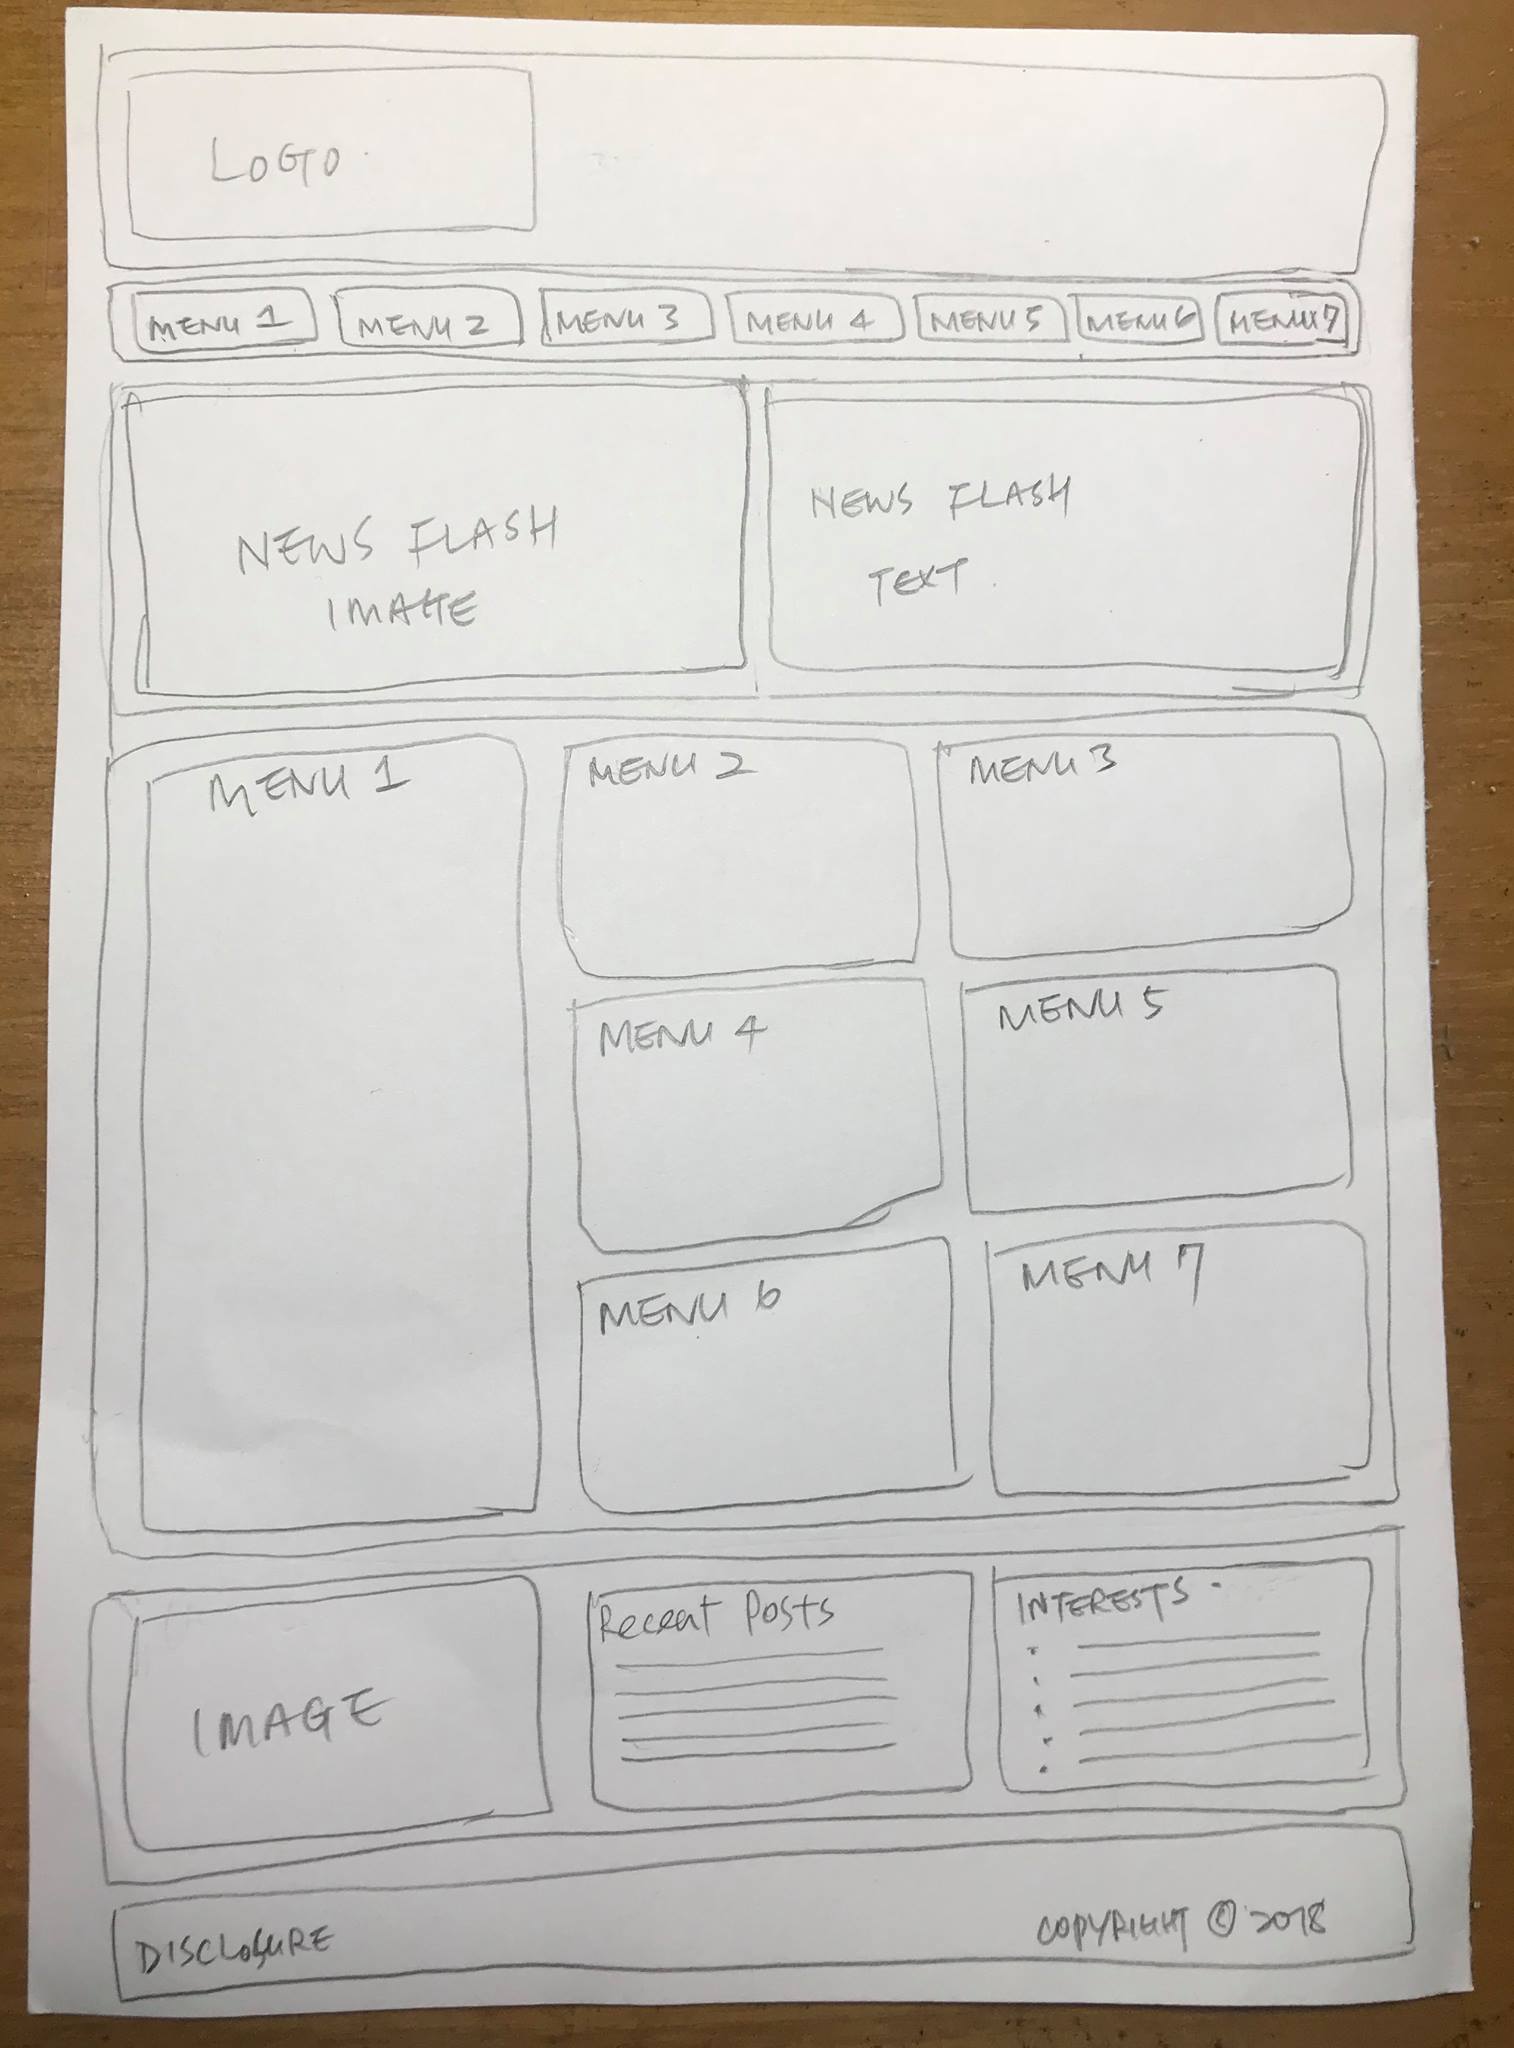 LOGO
MENU 1 MENU 2 MENU 3 MENU 4 MENU 5 MENU 6 MENU 7
NEWS FLASH
IMAGE
NEWS FLASH
TEXT
MENU 1
MENU 2
MENU 3
MENU 4
MENU 5
MENU 6
MENU 7
IMAGE
Recent Posts
INTERESTS
DISCLOSURE
COPYRIGHT © 2018